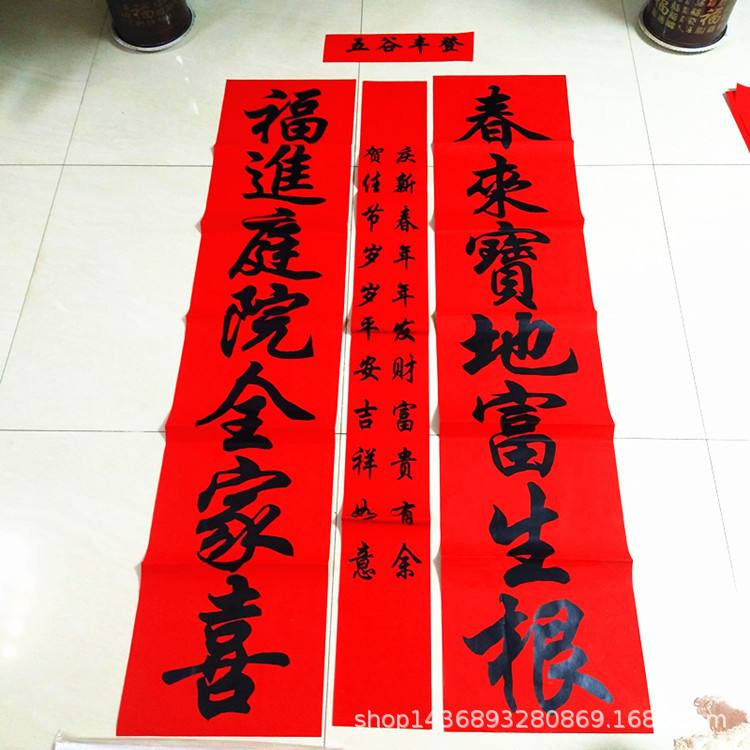 五谷丰登
春來寶地富生根
庆新春年年发财富贵有余
贺佳节岁岁平安吉祥如意
福進庭院全家喜
shop1436893280869.168